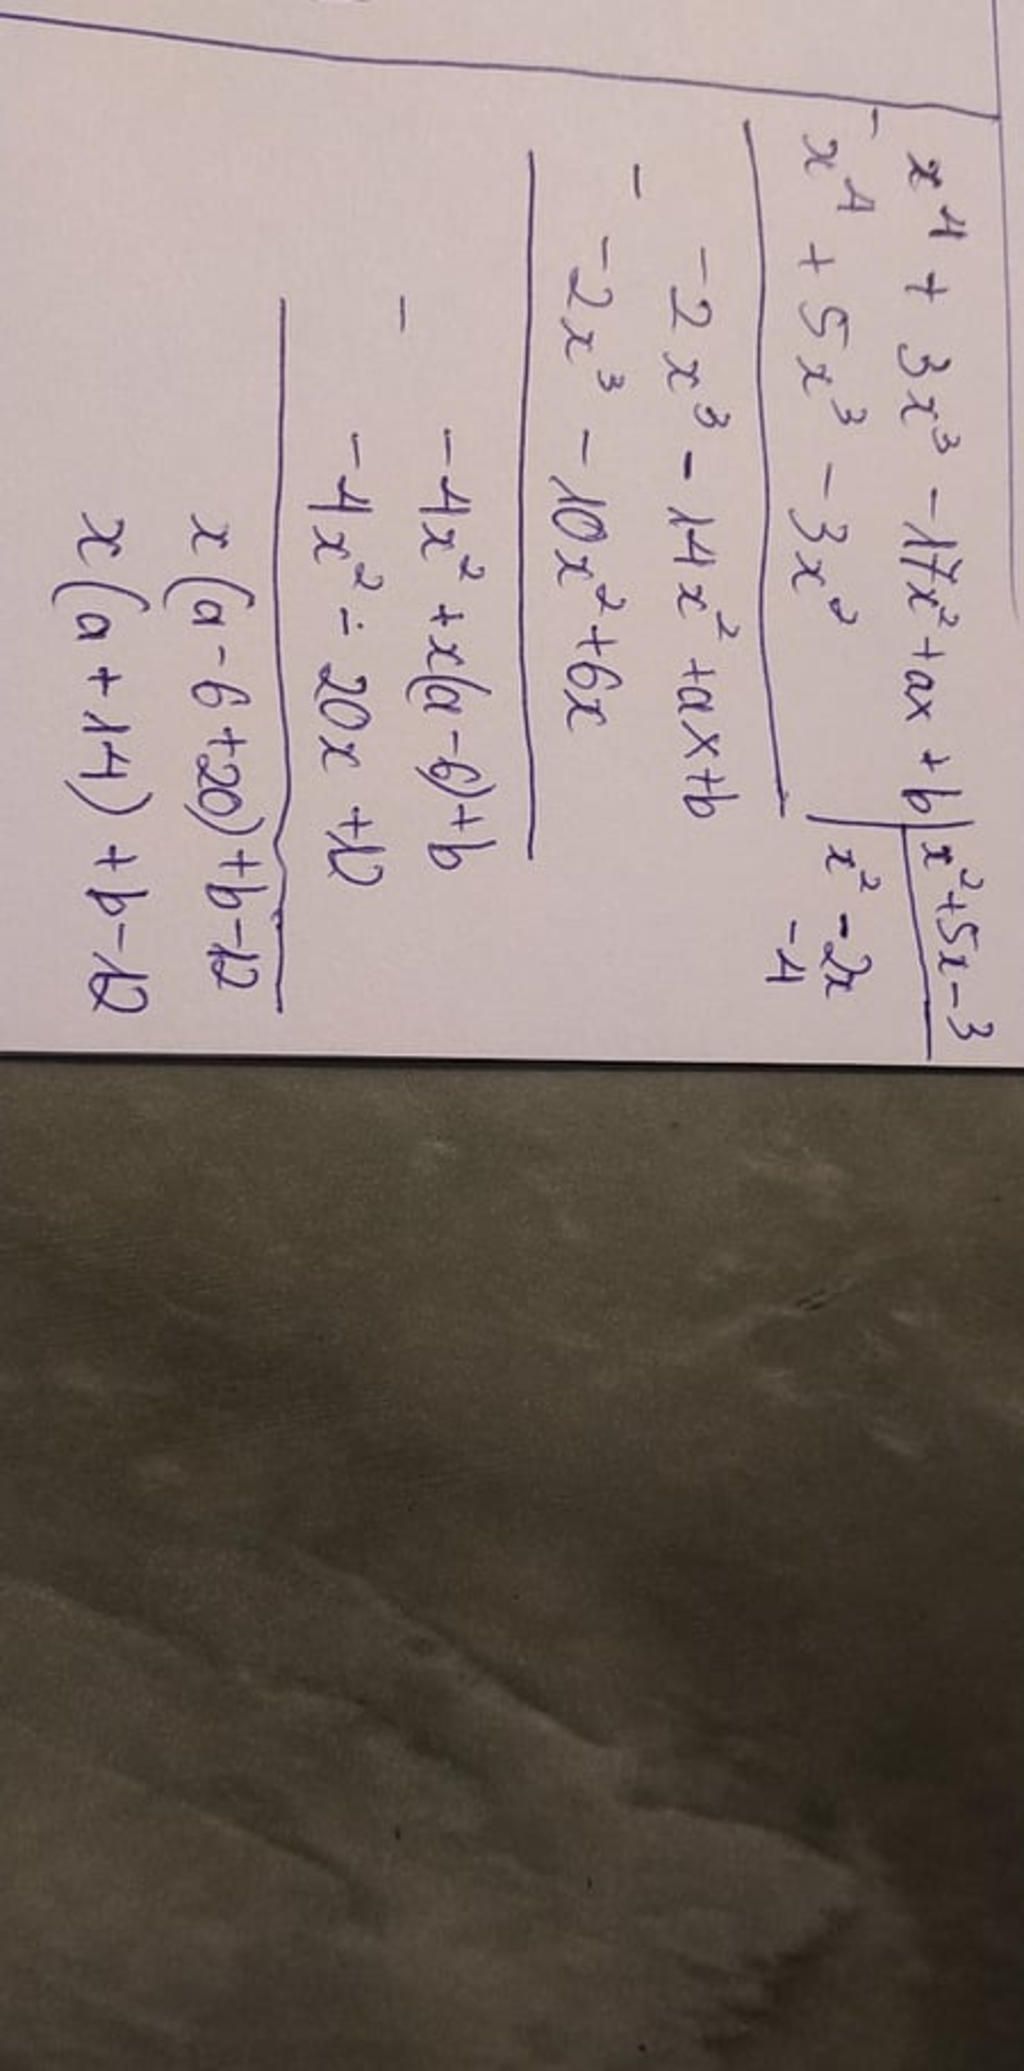 x⁴ + 3x³ - 17x² + ax + b | x² + 5x - 3
x⁴ + 5x³ - 3x² | x² - 2x
-4
-2x³ - 14x² + ax + b
-
-2x³ - 10x² + 6x
-4x² + x(a-6) + b
-
-4x² - 20x + 12
x(a - 6 + 20) + b - 12
x(a + 14) + b - 12